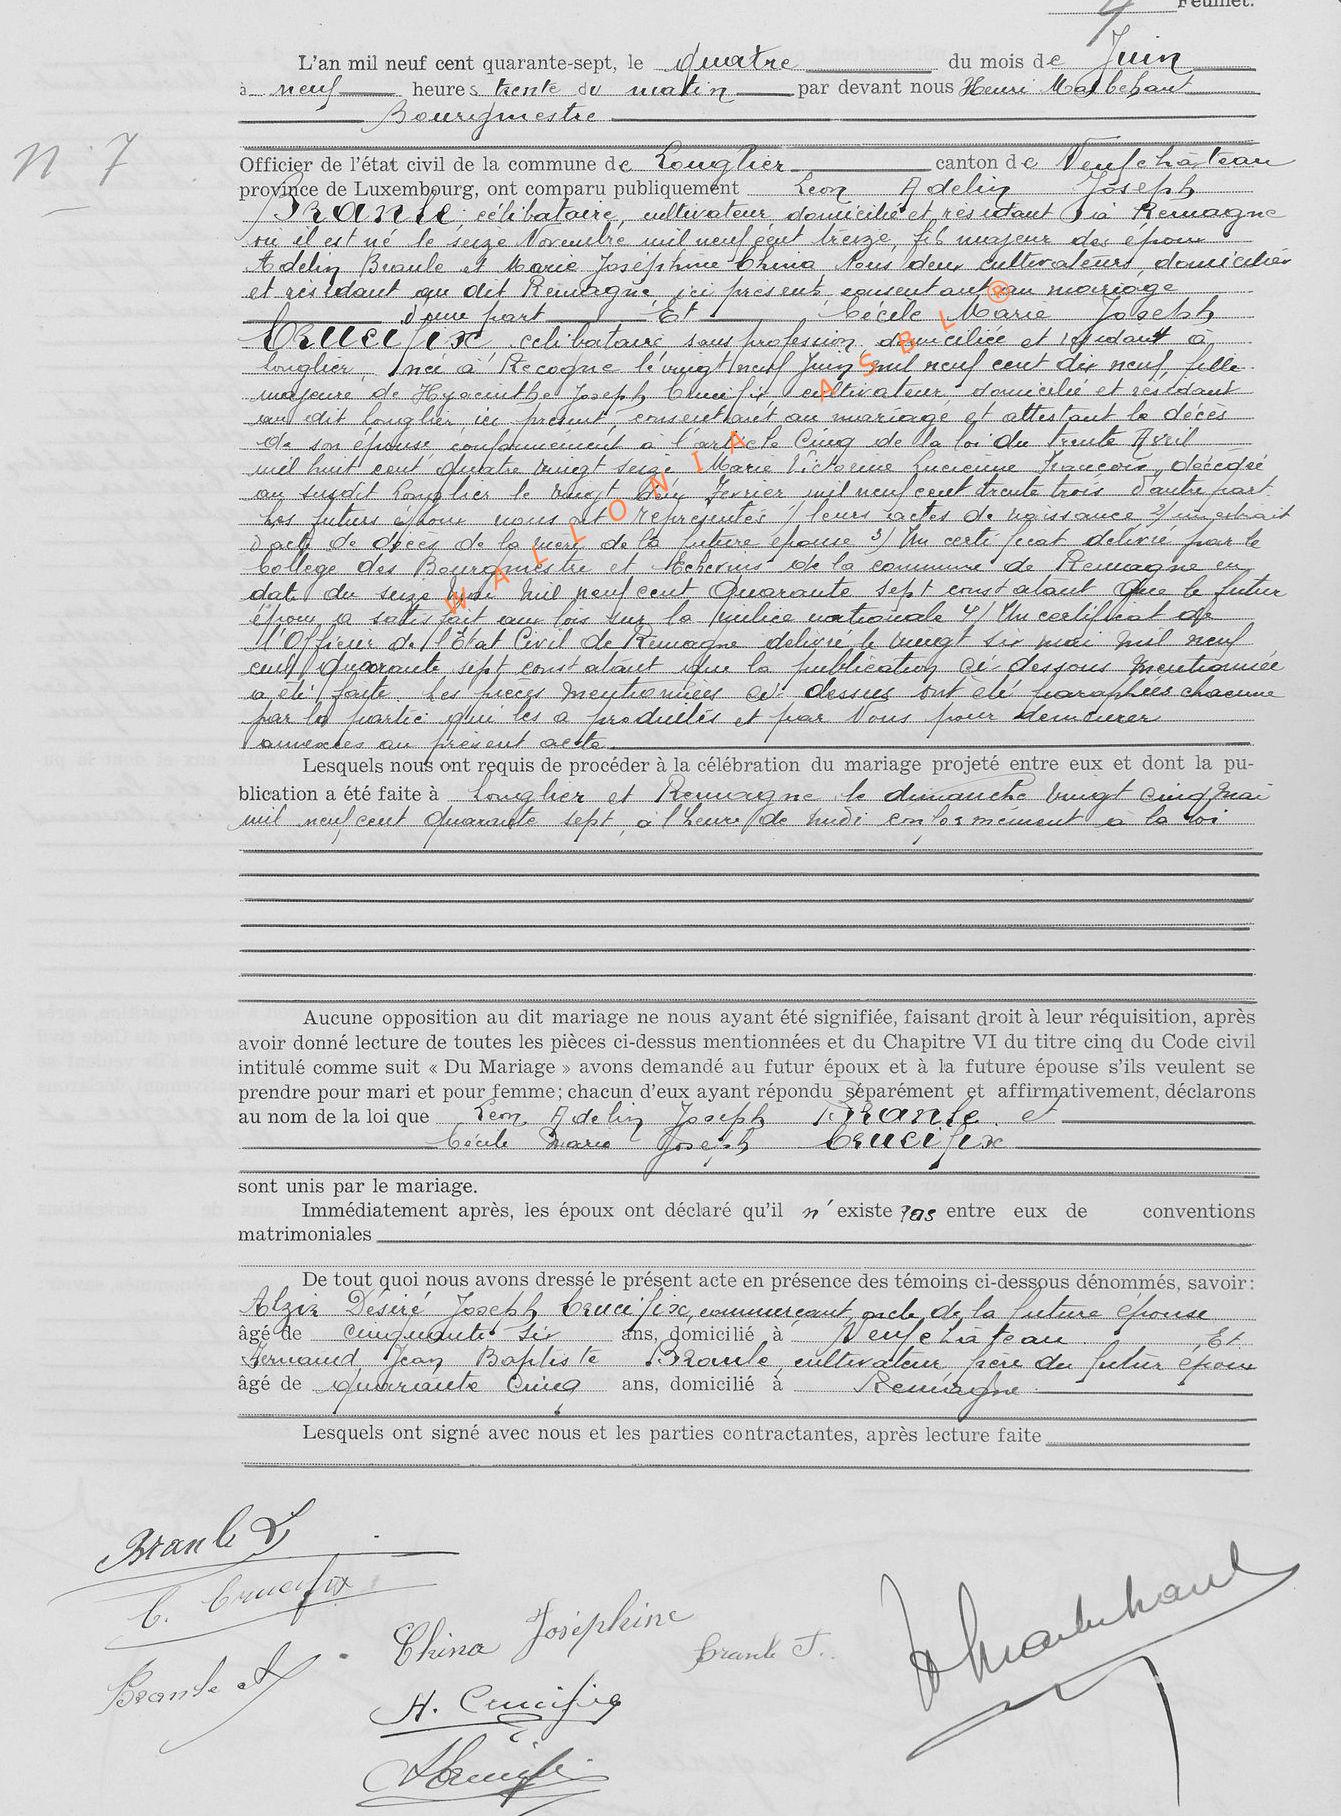 4 Feuillet.
L'an mil neuf cent quarante-sept, le quatre du mois de Juin
à neuf heures trente du matin par devant nous Henri Marbehant
Bourgmestre
N° 7
Officier de l'état civil de la commune de Longlier canton de Neufchâteau
province de Luxembourg, ont comparu publiquement Léon Adelin Joseph
Branle célibataire, cultivateur domicilié et résidant à Remagne
où il est né le seize Novembre mil neuf cent treize, fils majeur des époux
Adelin Branle et Marie Joséphine China tous deux cultivateurs, domiciliés
et résidant au dit Remagne, ici présents, consentant au mariage
d'une part Et Cécile Marie Joseph
Crucifix célibataire sans profession domiciliée et résidant à
Longlier, née à Recogne le vingt neuf Juin mil neuf cent dix neuf, fille
majeure de Hyacinthe Joseph Crucifix cultivateur, domicilié et résidant
au dit Longlier, ici présent, consentant au mariage et attestant le décès
de son épouse conformément à l'article Cinq de la loi du trente Avril
mil huit cent quatre vingt seize Marie Victorine Lucienne François, décédée
au susdit Longlier le vingt deux Février mil neuf cent trente trois d'autre part.
Les futurs époux nous ont représentés 1/ leurs actes de naissance 2/ un extrait
d'acte de décès de la mère de la future épouse 3/ Un certificat délivré par le
Collège des Bourgmestre et Echevins de la commune de Remagne en
date du seize mai mil neuf cent Quarante sept constatant que le futur
époux a satisfait aux lois sur la milice nationale 4/ Un certificat de
l'Officier de l'Etat Civil de Remagne délivré le vingt six mai mil neuf
cent quarante sept constatant que la publication ci dessous mentionnée
a été faite. Les pièces mentionnées ci dessus ont été paraphées chacune
par la partie qui les a produites et par Nous pour demeurer
annexées au présent acte.
Lesquels nous ont requis de procéder à la célébration du mariage projeté entre eux et dont la pu-
blication a été faite à Longlier et Remagne le dimanche vingt cinq mai
mil neuf cent quarante sept, à l'heure de midi conformément à la loi
Aucune opposition au dit mariage ne nous ayant été signifiée, faisant droit à leur réquisition, après
avoir donné lecture de toutes les pièces ci-dessus mentionnées et du Chapitre VI du titre cinq du Code civil
intitulé comme suit « Du Mariage » avons demandé au futur époux et à la future épouse s'ils veulent se
prendre pour mari et pour femme; chacun d'eux ayant répondu séparément et affirmativement, déclarons
au nom de la loi que Léon Adelin Joseph Branle et
Cécile Marie Joseph Crucifix
sont unis par le mariage.
Immédiatement après, les époux ont déclaré qu'il n'existe pas entre eux de conventions
matrimoniales
De tout quoi nous avons dressé le présent acte en présence des témoins ci-dessous dénommés, savoir:
Alzir Désiré Joseph Crucifix, commerçant, oncle de la future épouse
âgé de cinquante six ans, domicilié à Neufchâteau Et
Fernand Jean Baptiste Branle, cultivateur frère du futur époux
âgé de quarante cinq ans, domicilié à Remagne
Lesquels ont signé avec nous et les parties contractantes, après lecture faite
Branle L
C. Crucifix
China Joséphine
Branle F.
H Marbehant
Branle A
H. Crucifix
A Crucifix
WALLONIA ASBL ®